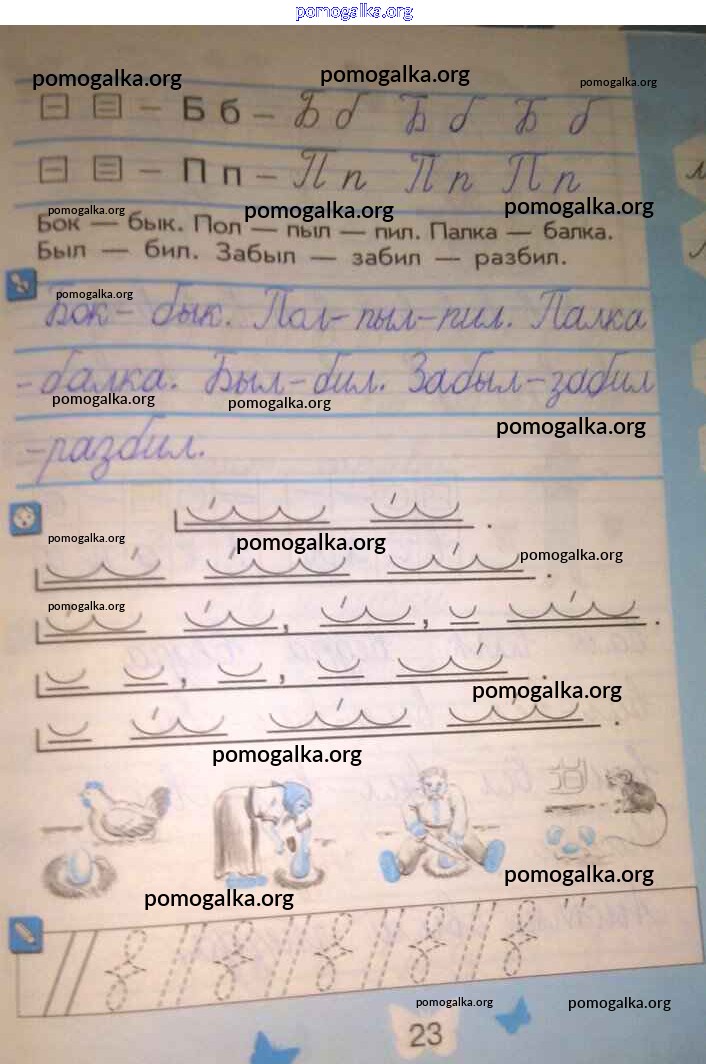 pomogalka.org
pomogalka.org pomogalka.org pomogalka.org
— Б б — Б б Б б Б б
— П п — П п П п П п
pomogalka.org pomogalka.org pomogalka.org
Бок — бык. Пол — пыл — пил. Палка — балка.
Был — бил. Забыл — забил — разбил.
pomogalka.org
Бок – бык. Пол – пыл – пил. Палка
– балка. Был – бил. Забыл – забил
pomogalka.org pomogalka.org pomogalka.org
– разбил.
pomogalka.org pomogalka.org pomogalka.org
pomogalka.org
pomogalka.org
pomogalka.org
pomogalka.org
pomogalka.org
pomogalka.org pomogalka.org
23